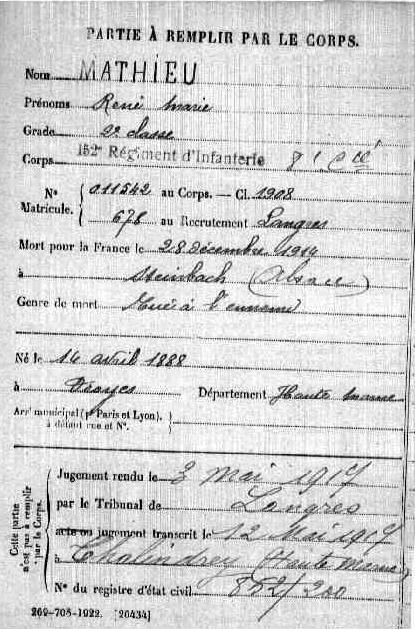 PARTIE À REMPLIR PAR LE CORPS.
Nom MATHIEU
Prénoms René Marie
Grade 2e classe
Corps 152e Régiment d'Infanterie 8e Cie
No 011542 au Corps. — Cl. 1908
Matricule. 678 au Recrutement Langres
Mort pour la France le 28 décembre 1914
à Steinbach (Alsace)
Genre de mort Tué à l'ennemi
Né le 14 avril 1888
à Département Haute Marne
Arrt municipal (pr Paris et Lyon),
à défaut rue et No.
Cette partie n'est pas à remplir par le Corps.
Jugement rendu le 3 mai 1917
par le Tribunal de Langres
acte ou jugement transcrit le 12 Mai 1917
à Chalindrey (Haute Marne)
No du registre d'état civil 852/200
269-708-1922. [26434]